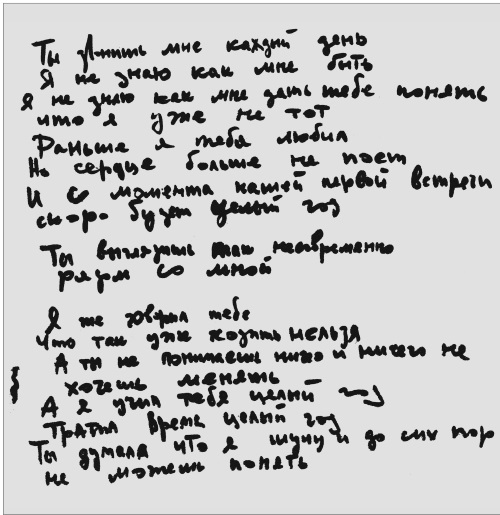 Ты звонишь мне каждый день
Я не знаю как мне быть
Я не знаю как мне дать тебе понять
что я уже не тот
Раньше я тебя любил
Но сердце больше не поет
И с момента нашей первой встречи
скоро будет целый год
Ты выглядишь так несовременно
рядом со мной
Я же говорил тебе
Что так уже ходить нельзя
А ты не понимаешь ничего и ничего не
хочешь менять
А я учил тебя целый год
Тратил время целый год
Ты думала что я шучу и до сих пор
не можешь понять